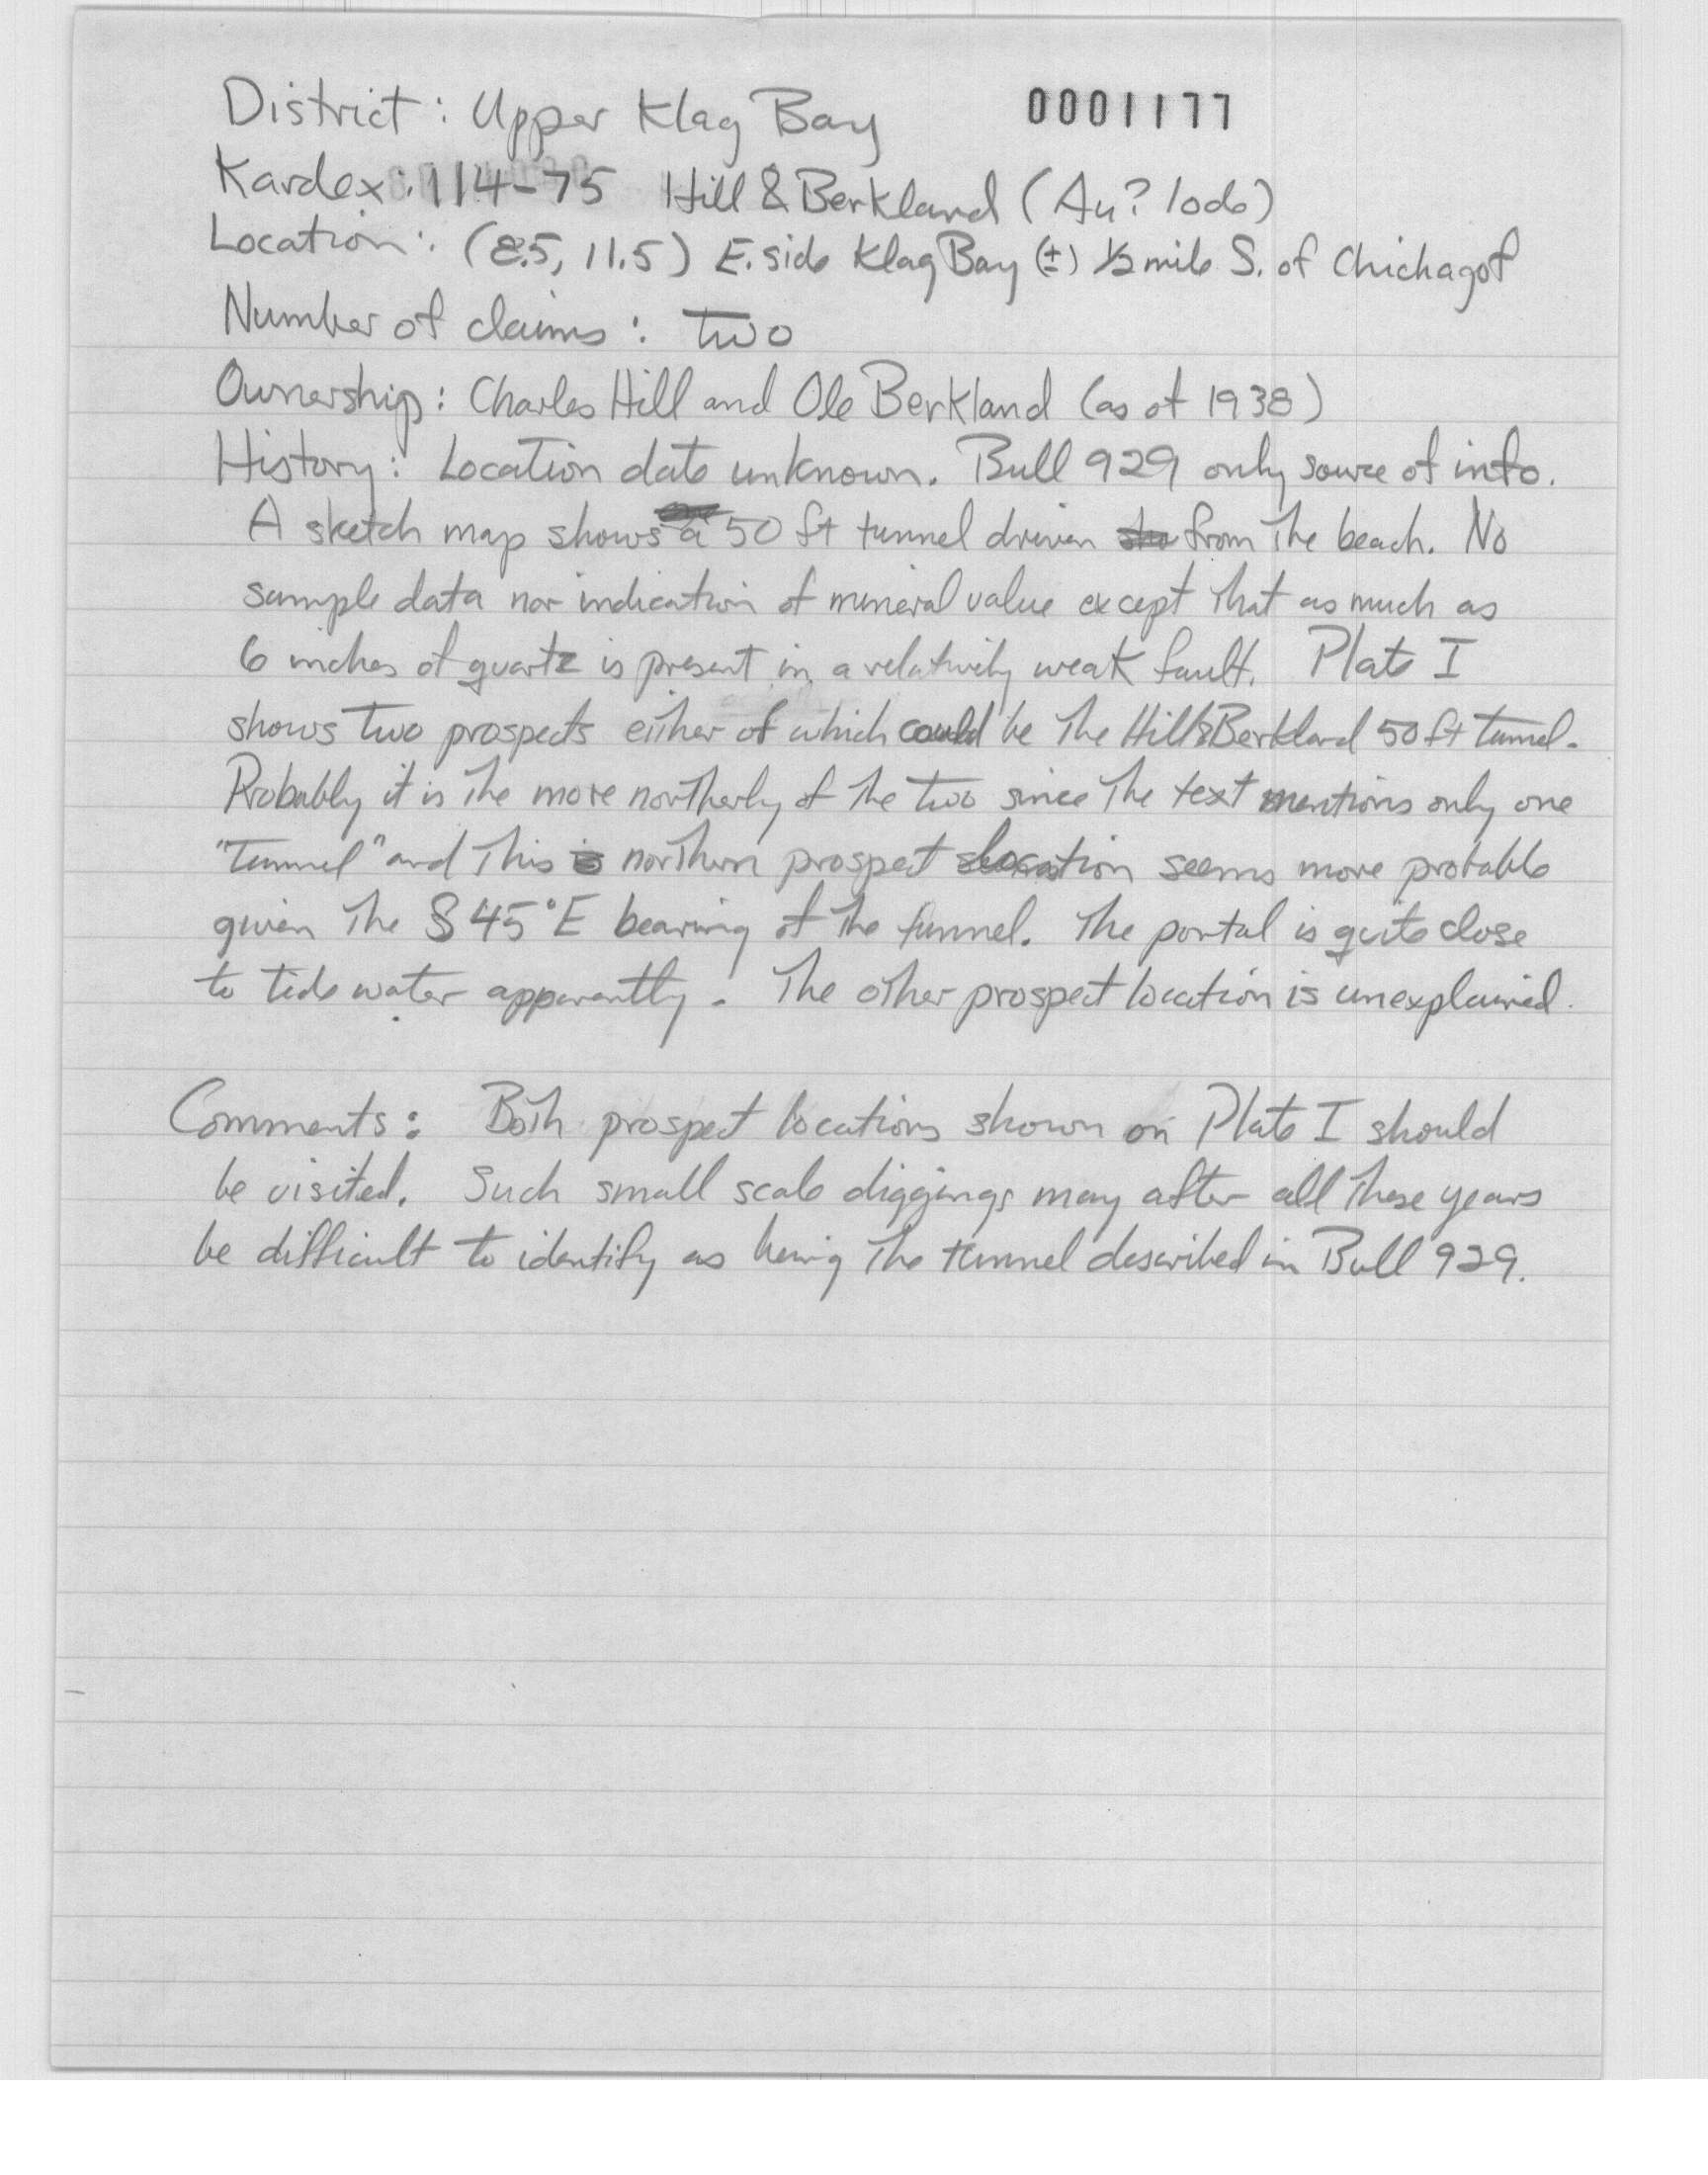 District: Upper Klag Bay 0001177
Kardex: 114-75 Hill & Berkland (Au? lode)
Location: (8.5, 11.5) E. side Klag Bay (±) ½ mile S. of Chichagof
Number of claims: two
Ownership: Charles Hill and Ole Berkland (as of 1938)
History: Location date unknown. Bull 929 only source of info.
A sketch map shows a 50 ft tunnel driven from the beach. No
sample data nor indication of mineral value except that as much as
6 inches of quartz is present in a relatively weak fault. Plate I
shows two prospects either of which could be the Hill & Berkland 50 ft tunnel.
Probably it is the more northerly of the two since the text mentions only one
"tunnel" and this northern prospect location seems more probable
given the S 45° E bearing of the tunnel. The portal is quite close
to tide water apparently. The other prospect location is unexplained.
Comments: Both prospect locations shown on Plate I should
be visited. Such small scale diggings may after all these years
be difficult to identify as being the tunnel described in Bull 929.